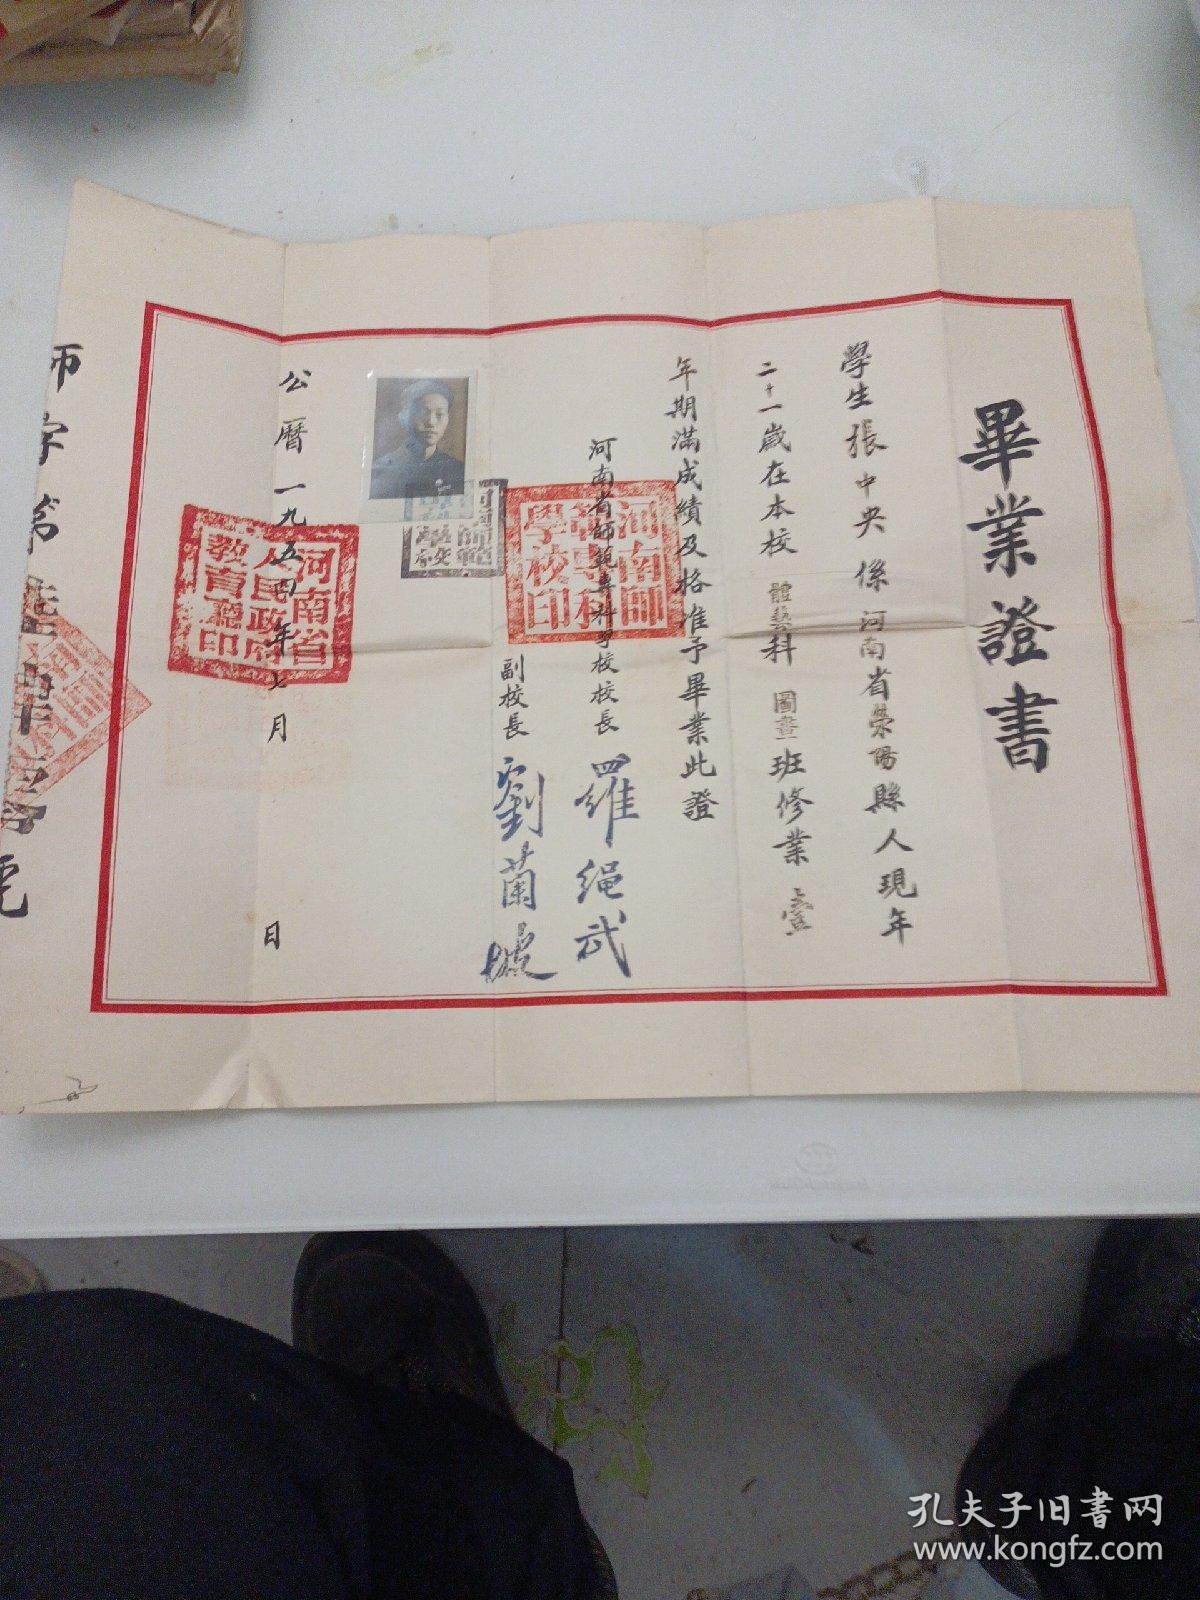 畢業證書
學生張中央係河南省滎陽縣人現年
二十一歲在本校體藝科圖畫班修業壹
年期滿成績及格准予畢業此證
河南省師範專科學校校長羅繩武
副校長劉蘭坡
公曆一九五四年七月 日
河南師
範專科
學校印
河南省
人民政府
教育廳印
師字第
孔夫子旧书网
www.kongfz.com